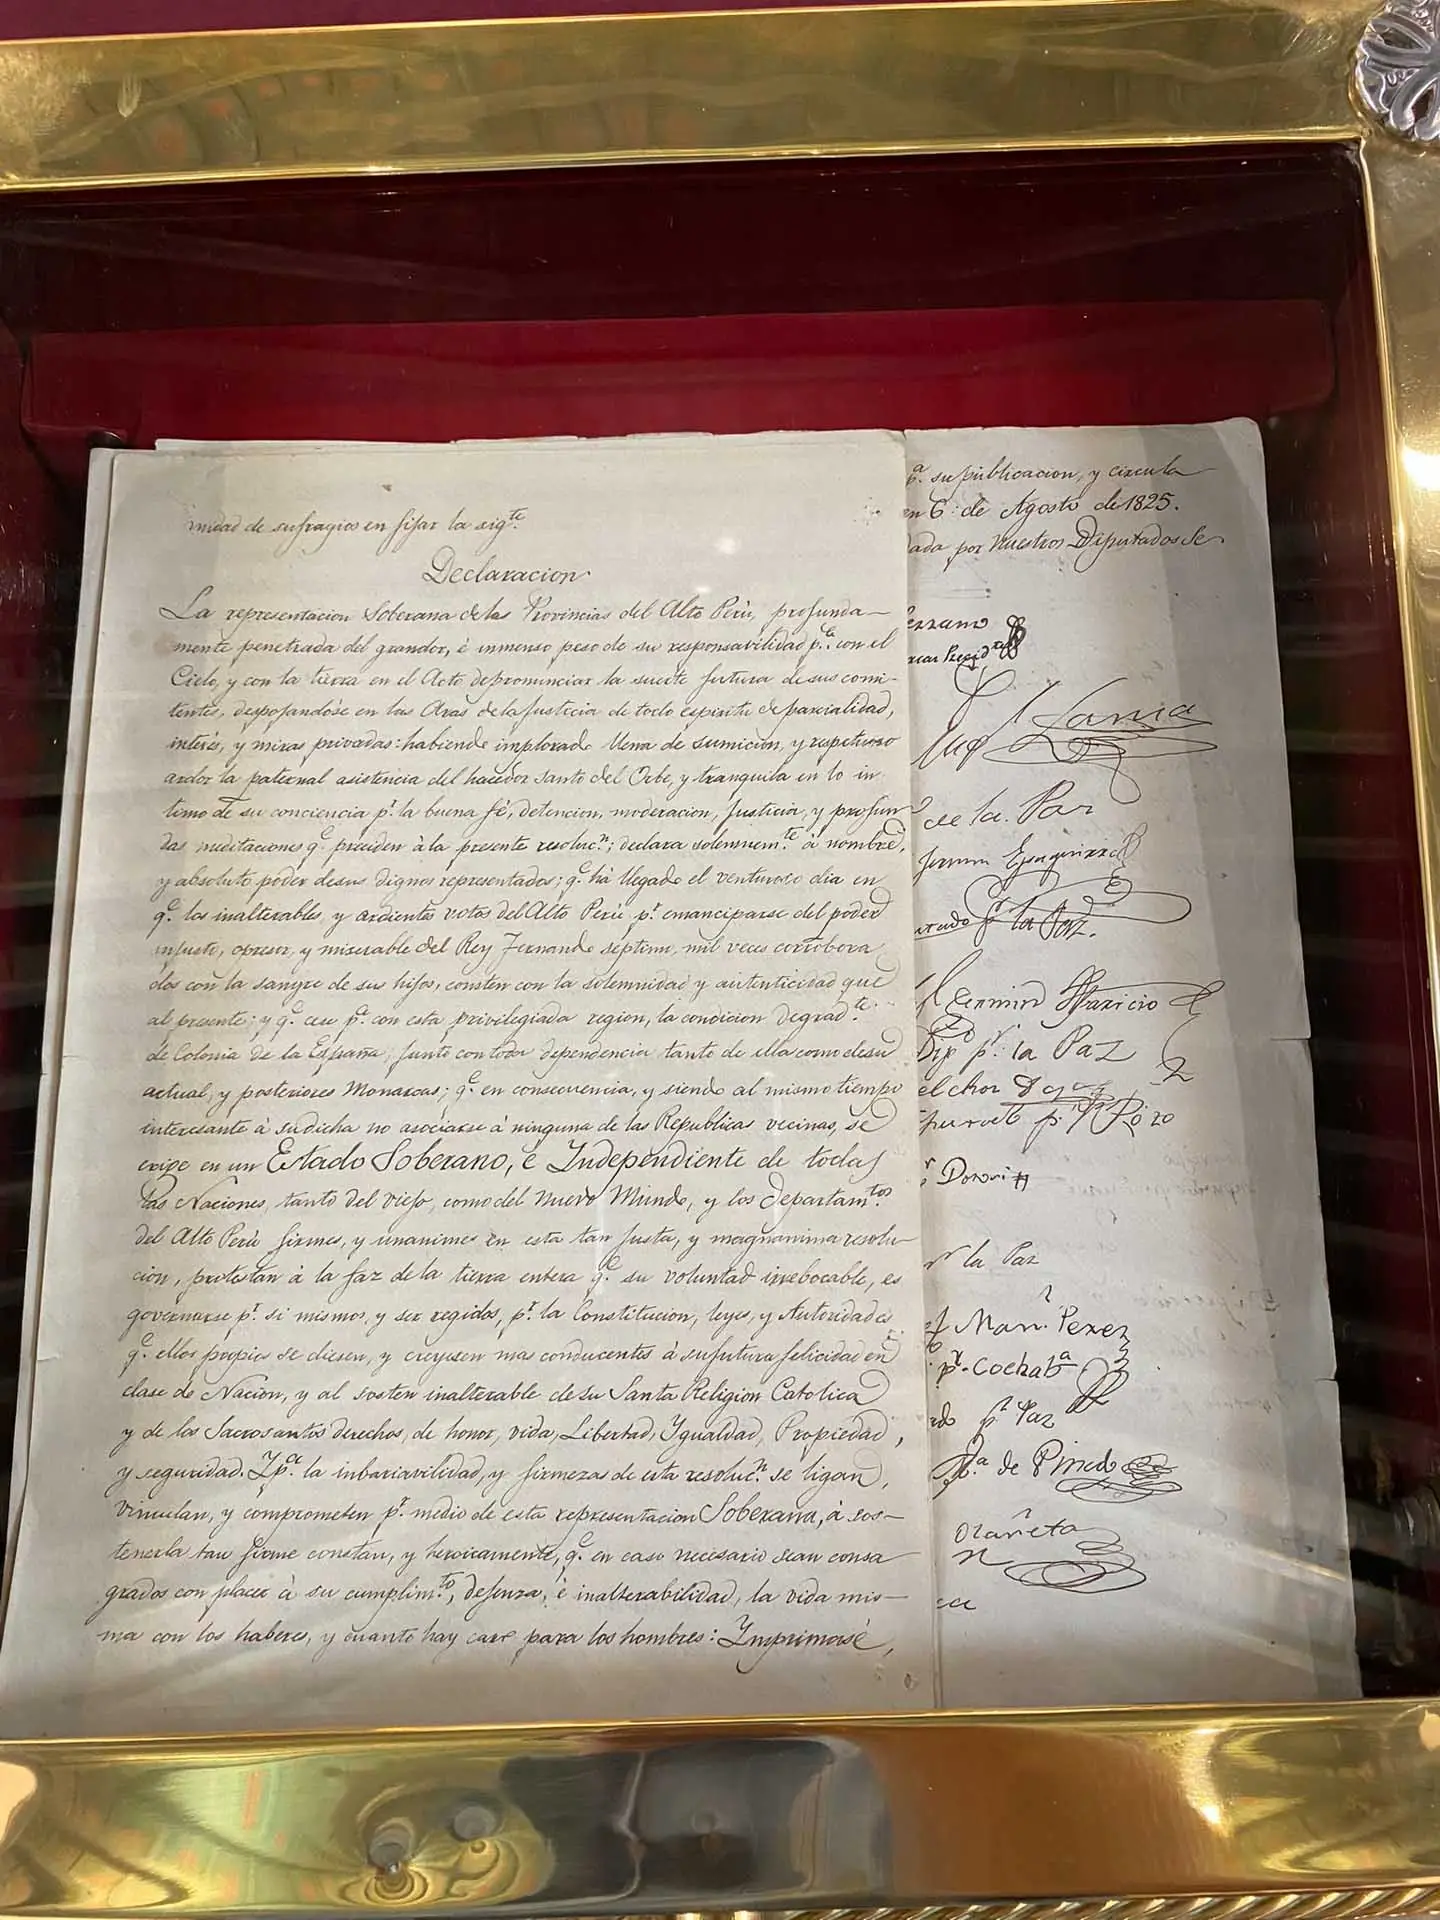 nidad de sufragios en fijar la sigte.
Declaracion
La representacion Soberana de las Provincias del Alto Perú, profunda-
mente penetrada del grandor, é inmenso peso de su responsavilidad pa. con el
Cielo, y con la tierra en el Acto de pronunciar la suerte futura de sus comi-
tentes, despojandóse en las Aras de la Justicia de todo espiritu de parcialidad,
interés, y miras privadas: habiendo implorado llena de sumicion, y respetuoso
ardor la paternal asistencia del hacedor santo del Orbe, y tranquila en lo in
timo de su conciencia pr. la buena fé, detencion, moderacion, Justicia, y profun
das meditaciones qe. preciden á la presente resolucn.; declara solemnemte. á nombre,
y absoluto poder de sus dignos representados; qe. há llegado el venturoso dia en
qe. los inalterables, y ardientes votos del Alto Perú pr. emanciparse del poder
injusto, opresor, y miserable del Rey Fernando septimo, mil veces corrobora
dos con la sangre de sus hijos, consten con la solemnidad y autenticidad que
al presente; y qe. cese pa. con esta privilegiada region, la condicion degradte.
de Colonia de la España, junto con toda dependencia tanto de ella como de su
actual, y posteriores Monarcas; qe. en consecuencia, y siendo al mismo tiempo
interesante á su dicha no asociarse á ninguna de las Republicas vecinas, se
erige en un Estado Soberano, é Independiente de todas
las Naciones, tanto del viejo, como del nuevo Mundo, y los Departamtos.
del Alto Perú firmes, y unanimes en esta tan justa, y magnanima resolu-
cion, protestan á la faz de la tierra entera qe. su voluntad irrebocable, es
governarse pr. si mismos, y ser regidos, pr. la Constitucion, leyes, y Autoridades
qe. ellos propios se diesen, y creyesen mas conducentes á su futura felicidad en
clase de Nacion, y al sosten inalterable de su Santa Religion Catolica
y de los Sacrosantos derechos, de honor, vida, Libertad, Ygualdad, Propiedad,
y seguridad. Y pa. la inbariavilidad, y firmeza de esta resolucn. se ligan,
vinculan, y comprometen pr. medio de esta representacion Soberana, á sos-
tenerla tan firme constan, y heroicamente, qe. en caso necesario sean consa
grados con placer á su cumplimto., defenza, é inalterabilidad, la vida mis-
ma con los haberes, y cuanto hay caro para los hombres: Ymprimasé,
pa. su publicacion, y circula
en 6: de Agosto de 1825.
dada por nuestros Diputados Se
errano
Lanza
de la Paz
pr. la Paz.
Fermin Aparicio
Dip pr. la Paz
elchor
pr. la Paz
Man. Perez
pr. Cochaba
pr. Paz
Ma. de Pinedo
Olañeta